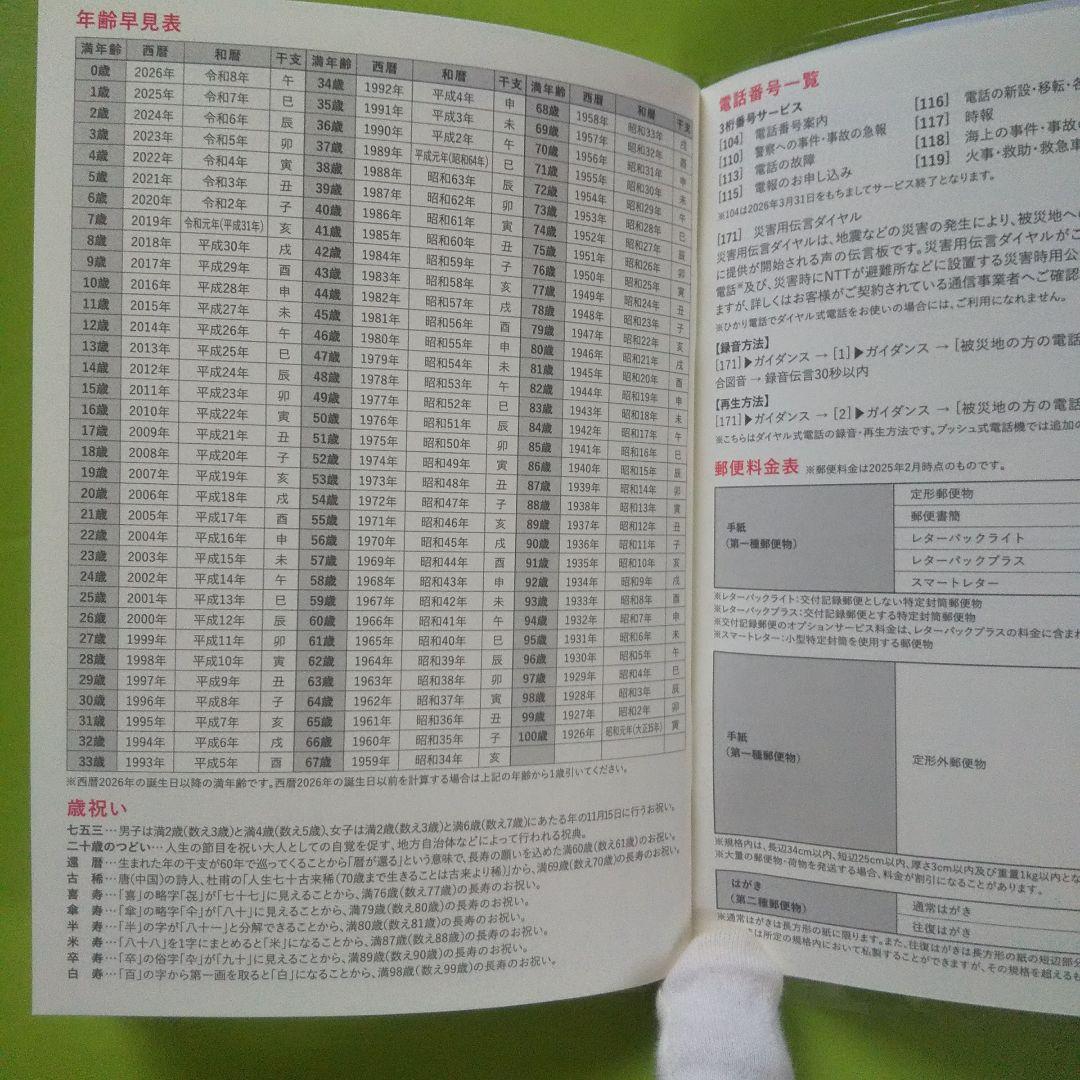 年齢早見表
満年齢 西暦 和暦 干支 満年齢 西暦 和暦 干支 満年齢 西暦 和暦 干支
0歳 2026年 令和8年 午 34歳 1992年 平成4年 申 68歳 1958年 昭和33年 戌
1歳 2025年 令和7年 巳 35歳 1991年 平成3年 未 69歳 1957年 昭和32年 酉
2歳 2024年 令和6年 辰 36歳 1990年 平成2年 午 70歳 1956年 昭和31年 申
3歳 2023年 令和5年 卯 37歳 1989年 平成元年(昭和64年) 巳 71歳 1955年 昭和30年 未
4歳 2022年 令和4年 寅 38歳 1988年 昭和63年 辰 72歳 1954年 昭和29年 午
5歳 2021年 令和3年 丑 39歳 1987年 昭和62年 卯 73歳 1953年 昭和28年 巳
6歳 2020年 令和2年 子 40歳 1986年 昭和61年 寅 74歳 1952年 昭和27年 辰
7歳 2019年 令和元年(平成31年) 亥 41歳 1985年 昭和60年 丑 75歳 1951年 昭和26年 卯
8歳 2018年 平成30年 戌 42歳 1984年 昭和59年 子 76歳 1950年 昭和25年 寅
9歳 2017年 平成29年 酉 43歳 1983年 昭和58年 亥 77歳 1949年 昭和24年 丑
10歳 2016年 平成28年 申 44歳 1982年 昭和57年 戌 78歳 1948年 昭和23年 子
11歳 2015年 平成27年 未 45歳 1981年 昭和56年 酉 79歳 1947年 昭和22年 亥
12歳 2014年 平成26年 午 46歳 1980年 昭和55年 申 80歳 1946年 昭和21年 戌
13歳 2013年 平成25年 巳 47歳 1979年 昭和54年 未 81歳 1945年 昭和20年 酉
14歳 2012年 平成24年 辰 48歳 1978年 昭和53年 午 82歳 1944年 昭和19年 申
15歳 2011年 平成23年 卯 49歳 1977年 昭和52年 巳 83歳 1943年 昭和18年 未
16歳 2010年 平成22年 寅 50歳 1976年 昭和51年 辰 84歳 1942年 昭和17年 午
17歳 2009年 平成21年 丑 51歳 1975年 昭和50年 卯 85歳 1941年 昭和16年 巳
18歳 2008年 平成20年 子 52歳 1974年 昭和49年 寅 86歳 1940年 昭和15年 辰
19歳 2007年 平成19年 亥 53歳 1973年 昭和48年 丑 87歳 1939年 昭和14年 卯
20歳 2006年 平成18年 戌 54歳 1972年 昭和47年 子 88歳 1938年 昭和13年 寅
21歳 2005年 平成17年 酉 55歳 1971年 昭和46年 亥 89歳 1937年 昭和12年 丑
22歳 2004年 平成16年 申 56歳 1970年 昭和45年 戌 90歳 1936年 昭和11年 子
23歳 2003年 平成15年 未 57歳 1969年 昭和44年 酉 91歳 1935年 昭和10年 亥
24歳 2002年 平成14年 午 58歳 1968年 昭和43年 申 92歳 1934年 昭和9年 戌
25歳 2001年 平成13年 巳 59歳 1967年 昭和42年 未 93歳 1933年 昭和8年 酉
26歳 2000年 平成12年 辰 60歳 1966年 昭和41年 午 94歳 1932年 昭和7年 申
27歳 1999年 平成11年 卯 61歳 1965年 昭和40年 巳 95歳 1931年 昭和6年 未
28歳 1998年 平成10年 寅 62歳 1964年 昭和39年 辰 96歳 1930年 昭和5年 午
29歳 1997年 平成9年 丑 63歳 1963年 昭和38年 卯 97歳 1929年 昭和4年 巳
30歳 1996年 平成8年 子 64歳 1962年 昭和37年 寅 98歳 1928年 昭和3年 辰
31歳 1995年 平成7年 亥 65歳 1961年 昭和36年 丑 99歳 1927年 昭和2年 卯
32歳 1994年 平成6年 戌 66歳 1960年 昭和35年 子 100歳 1926年 昭和元年(大正15年) 寅
33歳 1993年 平成5年 酉 67歳 1959年 昭和34年 亥
※西暦2026年の誕生日以降の満年齢です。西暦2026年の誕生日以前を計算する場合は上記の年齢から1歳引いてください。
歳祝い
七五三…男子は満2歳(数え3歳)と満4歳(数え5歳)、女子は満2歳(数え3歳)と満6歳(数え7歳)にあたる年の11月15日に行うお祝い。
二十歳のつどい…人生の節目を祝い大人としての自覚を促す、地方自治体などによって行われる祝典。
還 暦…生まれた年の干支が60年で巡ってくることから「暦が還る」という意味で、長寿の願いを込めた満60歳(数え61歳)のお祝い。
古 稀…唐(中国)の詩人、杜甫の「人生七十古来稀(70歳まで生きることは古来より稀)」から、満69歳(数え70歳)の長寿のお祝い。
喜 寿…「喜」の略字「㐂」が「七十七」に見えることから、満76歳(数え77歳)の長寿のお祝い。
傘 寿…「傘」の略字「仐」が「八十」に見えることから、満79歳(数え80歳)の長寿のお祝い。
半 寿…「半」の字が「八十一」と分解できることから、満80歳(数え81歳)の長寿のお祝い。
米 寿…「八十八」を1字にまとめると「米」になることから、満87歳(数え88歳)の長寿のお祝い。
卒 寿…「卒」の俗字「卆」が「九十」に見えることから、満89歳(数え90歳)の長寿のお祝い。
白 寿…「百」の字から第一画を取ると「白」になることから、満98歳(数え99歳)の長寿のお祝い。
電話番号一覧
3桁番号サービス
[104] 電話番号案内
[110] 警察への事件・事故の急報
[113] 電話の故障
[115] 電報のお申し込み
[116] 電話の新設・移転・各
[117] 時報
[118] 海上の事件・事故の
[119] 火事・救助・救急車
※104は2026年3月31日をもちましてサービス終了となります。
[171] 災害用伝言ダイヤル
災害用伝言ダイヤルは、地震などの災害の発生により、被災地への
に提供が開始される声の伝言板です。災害用伝言ダイヤルがご
電話※及び、災害時にNTTが避難所などに設置する災害時用公
ますが、詳しくはお客様がご契約されている通信事業者へご確認
※ひかり電話でダイヤル式電話をお使いの場合には、ご利用になれません。
【録音方法】
[171]▶ガイダンス → [1]▶ガイダンス → [被災地の方の電話
合図音 → 録音伝言30秒以内
【再生方法】
[171]▶ガイダンス → [2]▶ガイダンス → [被災地の方の電話
※こちらはダイヤル式電話の録音・再生方法です。プッシュ式電話機では追加の
郵便料金表 ※郵便料金は2025年2月時点のものです。
手紙
(第一種郵便物)
定形郵便物
郵便書簡
レターパックライト
レターパックプラス
スマートレター
※レターパックライト:交付記録郵便としない特定封筒郵便物
※レターパックプラス:交付記録郵便とする特定封筒郵便物
※交付記録郵便のオプションサービス料金は、レターパックプラスの料金に含まれ
※スマートレター:小型特定封筒を使用する郵便物
手紙
(第一種郵便物)
定形外郵便物
※規格内は、長辺34cm以内、短辺25cm以内、厚さ3cm以内及び重量1kg以内とな
※大量の郵便物・荷物を発送する場合、料金が割引になることがあります。
はがき
(第二種郵便物)
通常はがき
往復はがき
※通常はがきは長方形の紙に限ります。また、往復はがきは長方形の紙の短辺部分
は所定の規格内において私製することができますが、その規格を超えるも